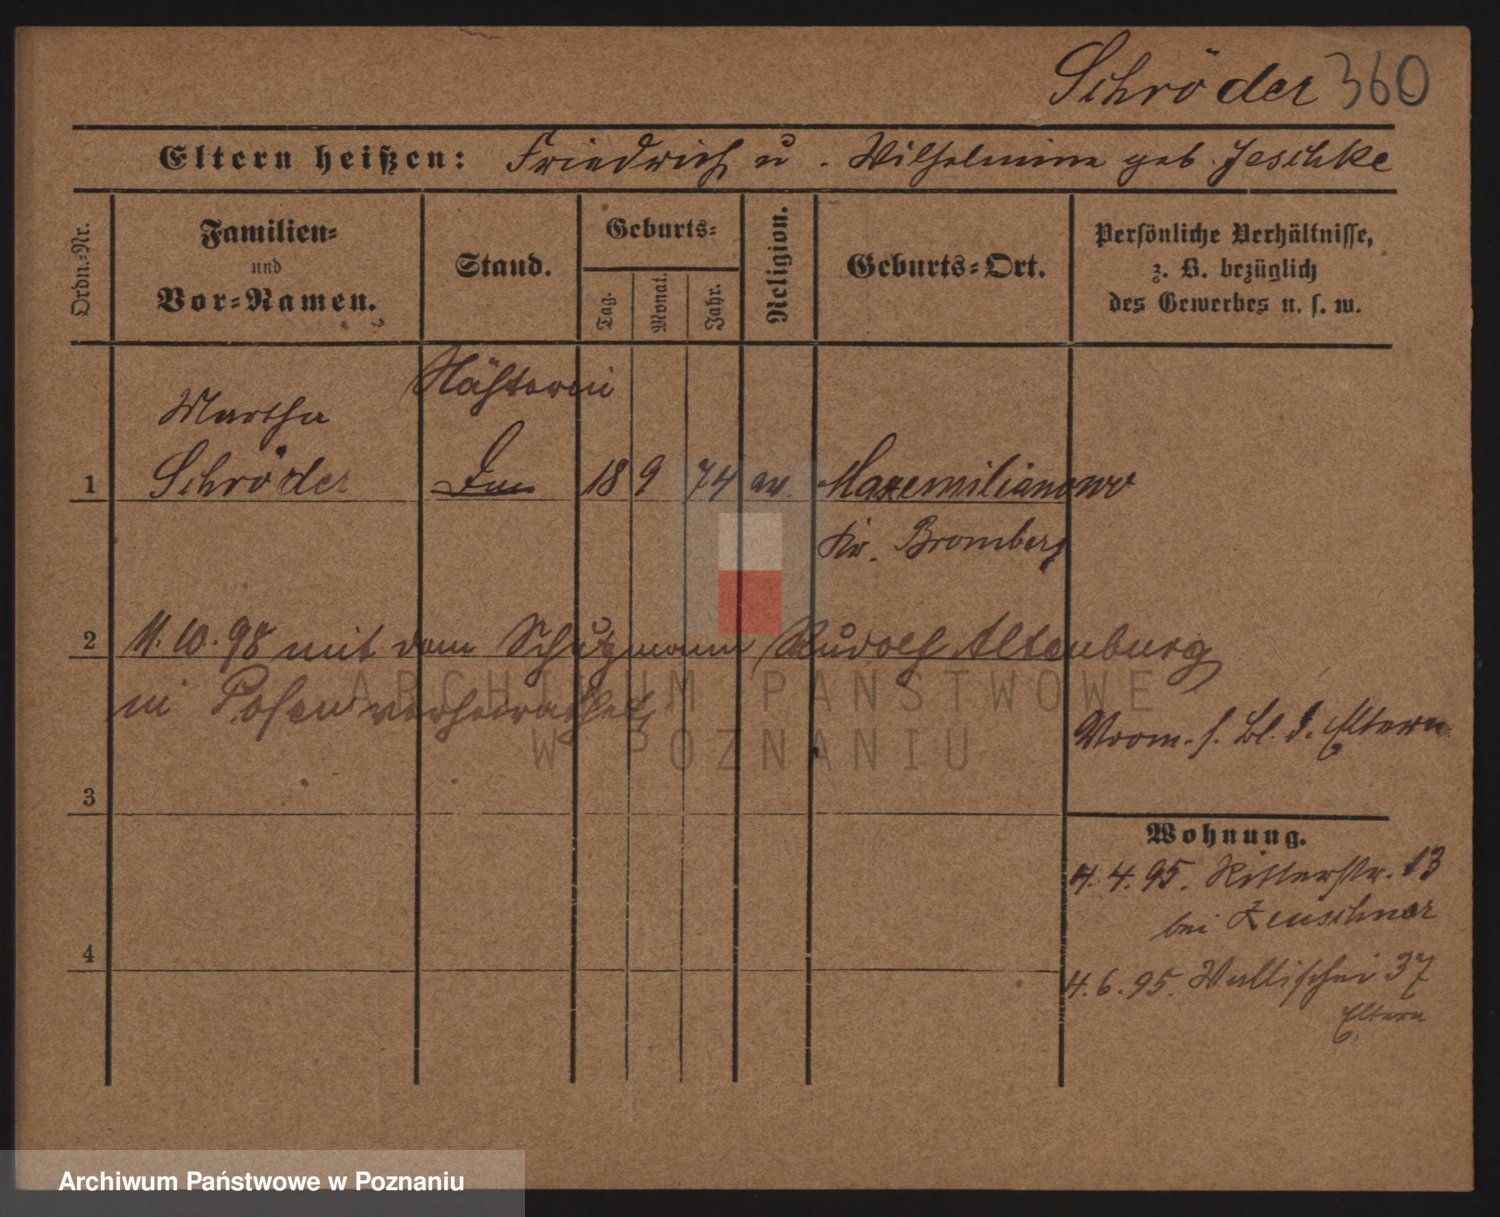 Schröder 360
Eltern heißen: Friedrich u. Wilhelmine geb. Jeschke
Ordn.-Nr.
Familien-
und
Vor-Namen.
Stand.
Geburts-
Tag.
Monat.
Jahr.
Religion.
Geburts-Ort.
Persönliche Verhältnisse,
z. B. bezüglich
des Gewerbes u. s. w.
Nähterin
Martha
1 Schröder 18 9 74 ev. Maxemilianowo
Kr. Bromberg
2 11.10.98 mit dem Schutzmann Rudolf Altenburg
in Posen verheirathet
ARCHIWUM PAŃSTWOWE
W POZNANIU
Vrom. s. Bl. d. Eltern
3
Wohnung.
4.4.95. Ritterstr. 13
bei Zeuschner
4
4.6.95. Wallischei 37
Eltern
Archiwum Państwowe w Poznaniu